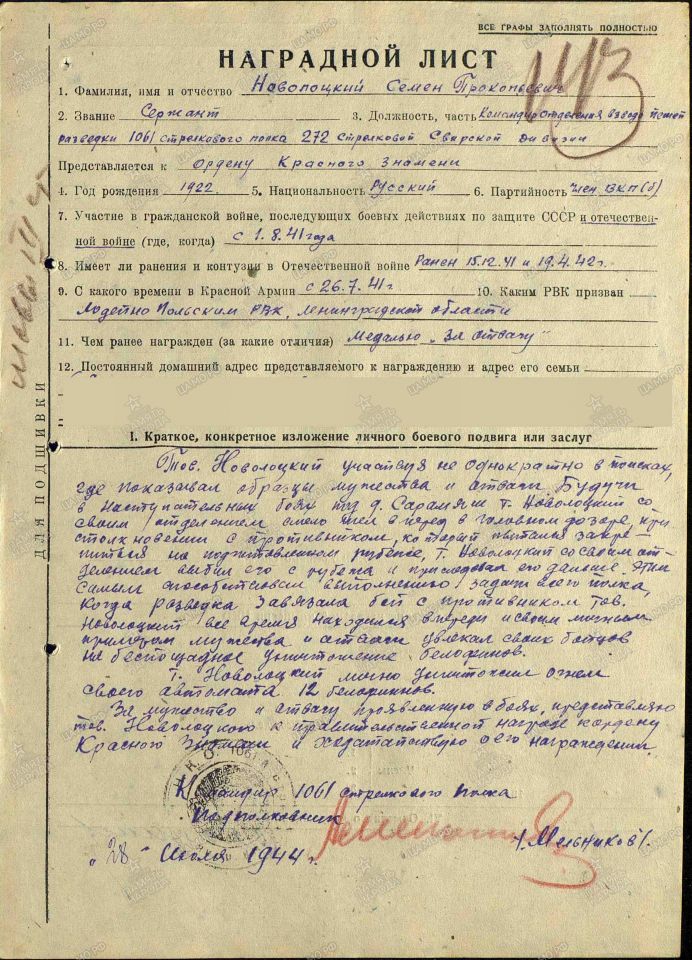 ВСЕ ГРАФЫ ЗАПОЛНЯТЬ ПОЛНОСТЬЮ
НАГРАДНОЙ ЛИСТ
1. Фамилия, имя и отчество Новолоцкий Семен Прокопьевич
2. Звание Сержант 3. Должность, часть Командир отделения взвода пешей
разведки 1061 стрелкового полка 272 стрелковой Свирской дивизии
Представляется к ордену Красного Знамени
4. Год рождения 1922 5. Национальность Русский 6. Партийность член ВКП(б)
7. Участие в гражданской войне, последующих боевых действиях по защите СССР и отечествен-
ной войне (где, когда) с 1.8.41 года
8. Имеет ли ранения и контузии в Отечественной войне Ранен 15.12.41 и 19.4.42г.
9. С какого времени в Красной Армии с 26.7.41г 10. Каким РВК призван
Лодейно Польским РВК, Ленинградской области
11. Чем ранее награжден (за какие отличия) Медалью „За отвагу"
12. Постоянный домашний адрес представляемого к награждению и адрес его семьи
ДЛЯ ПОДШИВКИ
I. Краткое, конкретное изложение личного боевого подвига или заслуг
Тов. Новолоцкий участвуя не однократно в поисках,
где показывал образцы мужества и отваги. Будучи
в наступательных боях под д. т. Новолоцкий со
своим отделением смело шел вперед в головном дозоре, при
столкновении с противником, который пытался закре-
питься на подготовленном рубеже, т. Новолоцкий со своим от-
делением выбил его с рубежа и преследовал его дальше. Этим
самым способствовал выполнению задачи всего полка,
когда разведка завязала бой с противником тов.
Новолоцкий все время находился впереди и своим личным
примером мужества и отваги увлекал своих бойцов
на беспощадное уничтожение белофинов.
т. Новолоцкий лично уничтожил огнем
своего автомата 12 белофиннов.
За мужество и отвагу проявленную в боях, представляю
тов. Новолоцкого к правительственной награде к ордену
Красного Знамени и ходатайствую о его награждении.
Командир 1061 стрелкового полка
Подполковник /Мельников/.
„28" Июля 1944г.